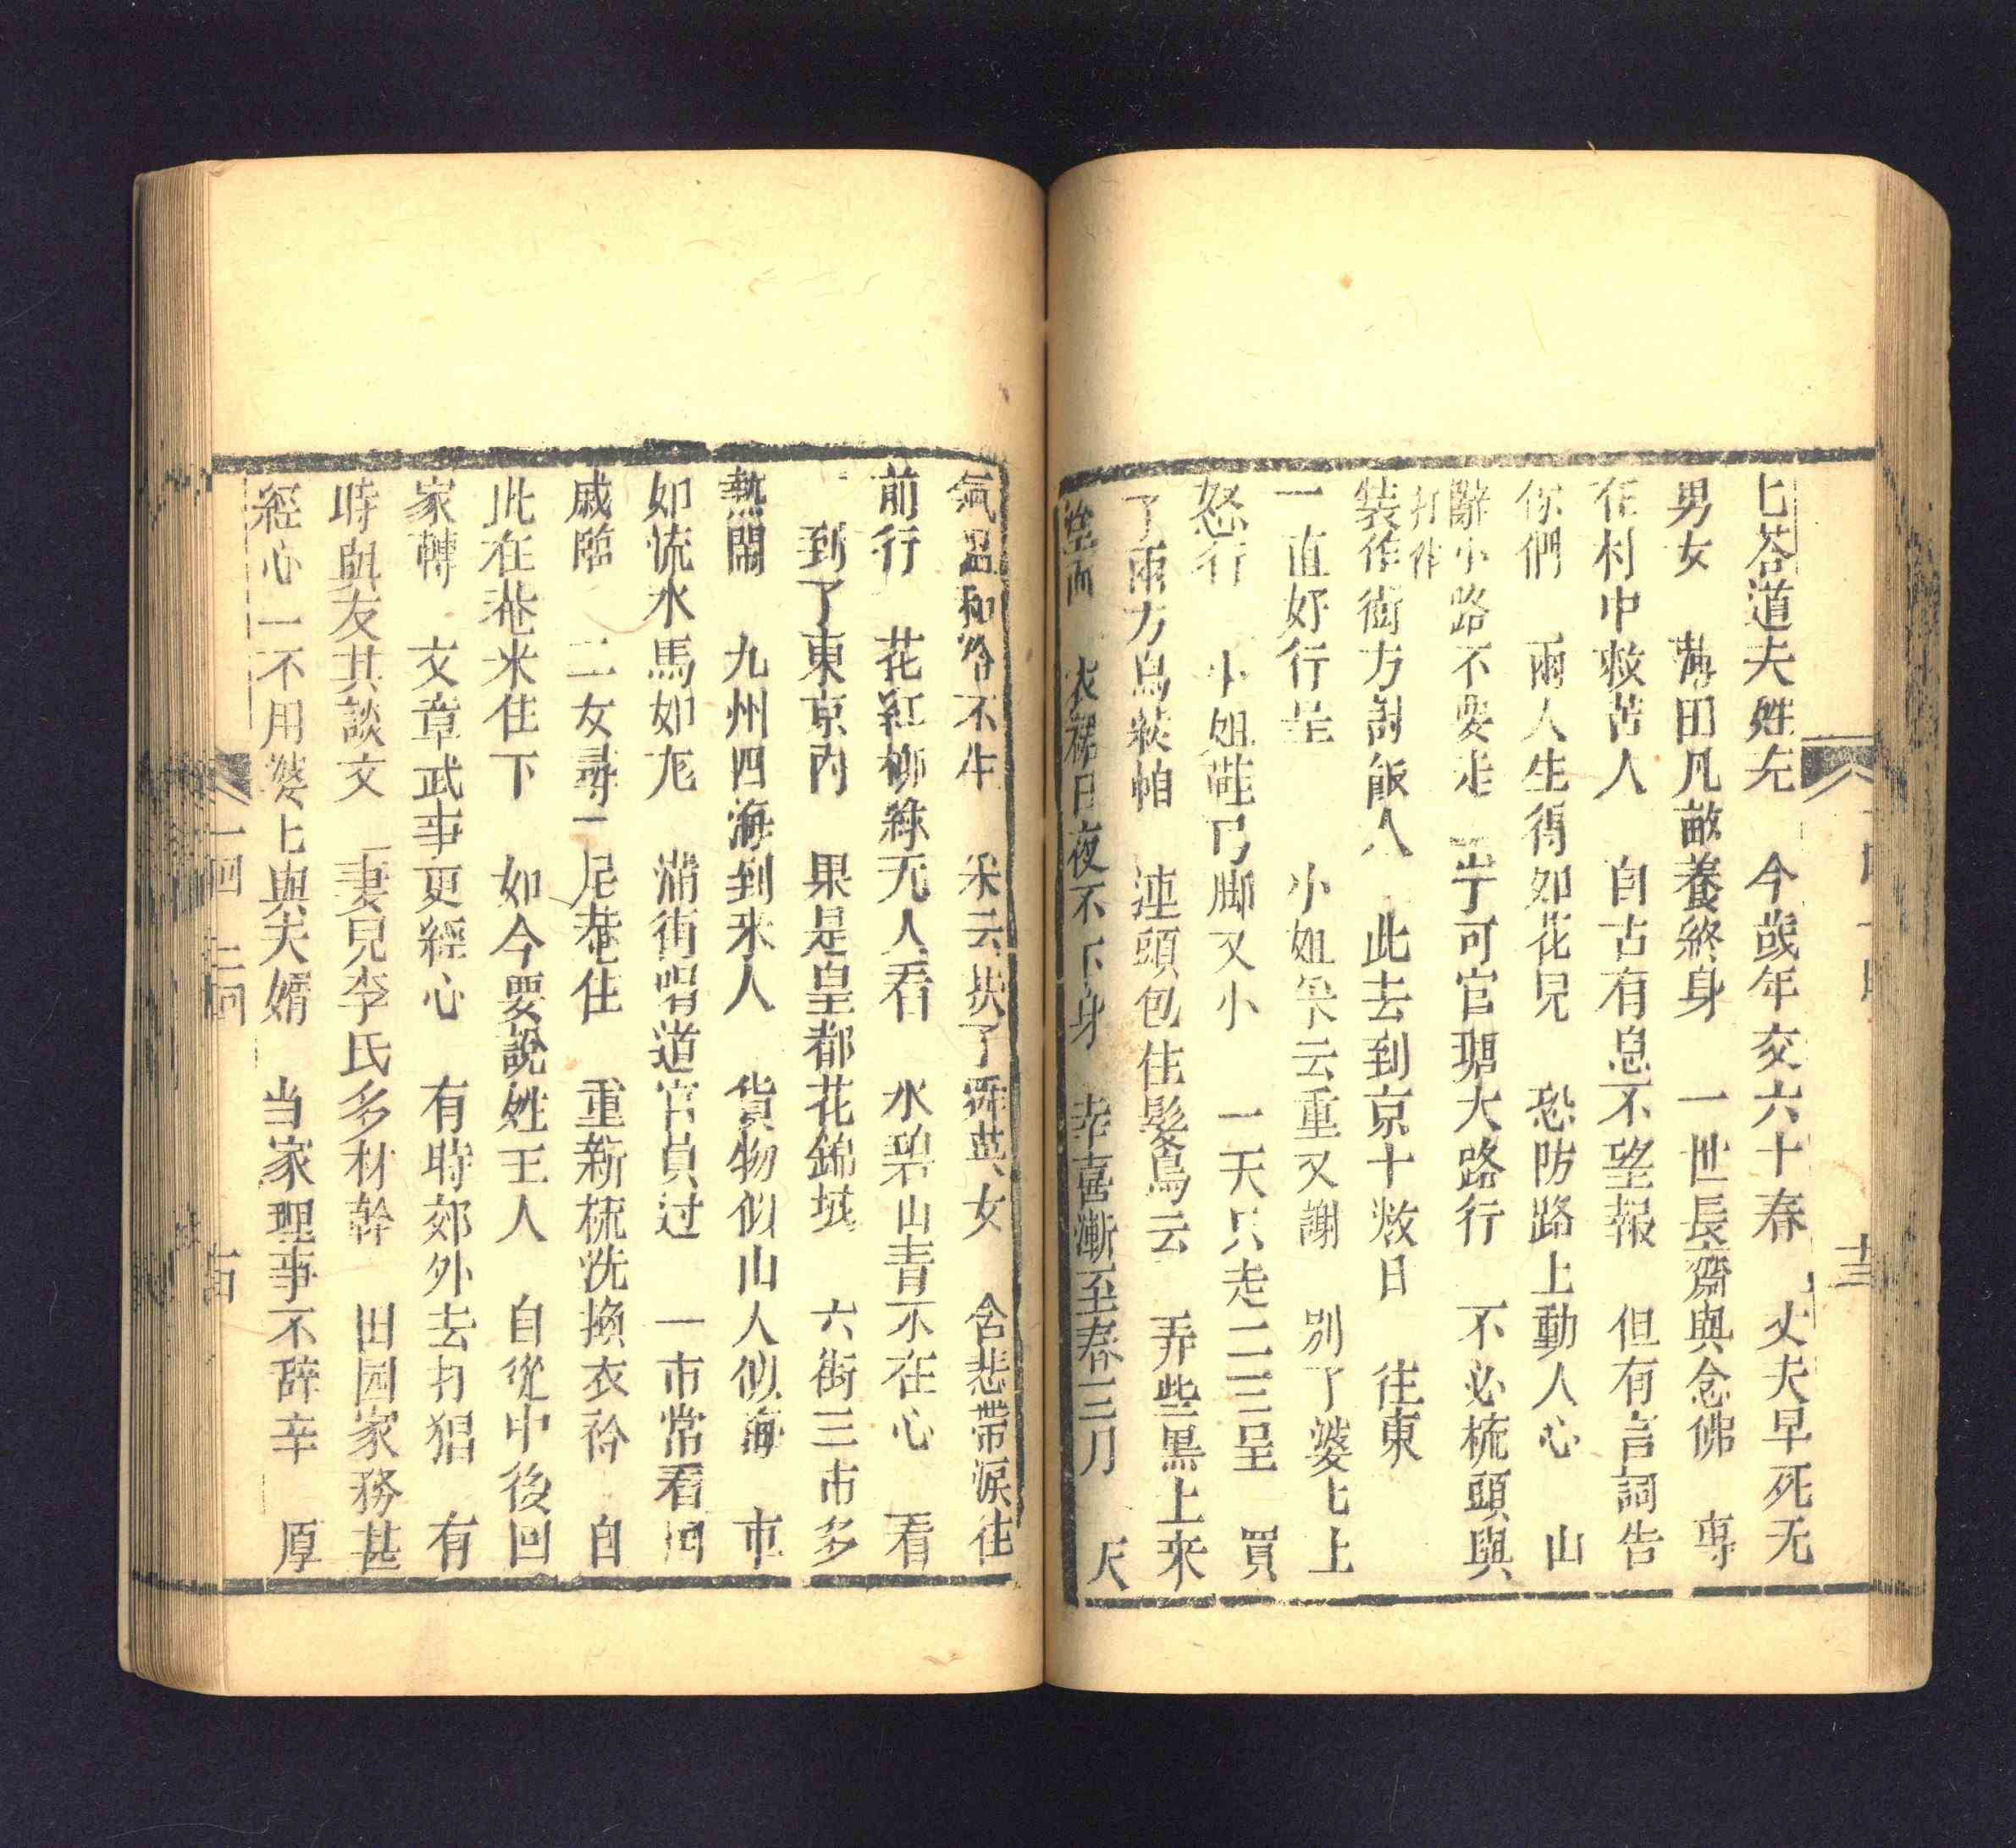 匕荅道夫姓左　今歲年交六十春　丈夫早死无
男女　薄田凡畝養終身　一世長齋與念佛　專
在村中救苦人　自古有恩不望報　但有言詞告
你們　兩人生得如花兒　恐防路上動人心　山
辭小路不要走　寧可官塘大路行　不必梳頭與
打作
裝作街方討飯人　此去到京十数日　往東
一直好行呈　小姐采云重又謝　別了婆匕上
怒行　小姐鞋弓脚又小　一天只走二三呈　買
了兩方烏莢帕　連頭包住髮烏云　弄些黑上來
塗面　衣裙日夜不下身　幸喜漸至春三月　天
氣溫和冷不生　采云扶了舜英女　含悲帶淚往
前行　花紅柳綠无人看　水碧山青不在心　看
到了東京內　果是皇都花錦城　六街三市多
熱鬧　九州四海到来人　貨物似山人似海　車
如流水馬如尨　滿街唱道官員过　一市常看囬
戚臨　二女尋一尼菴住　重新梳洗換衣衿　自
此在菴來住下　如今要説姓王人　自從中後回
家轉　文章武事更經心　有時郊外去打猖　有
時與友其談文　妻兒李氏多材幹　田园家務甚
經心　一不用婆匕與夫婿　当家理事不辞辛　厚
一回　二回
十三